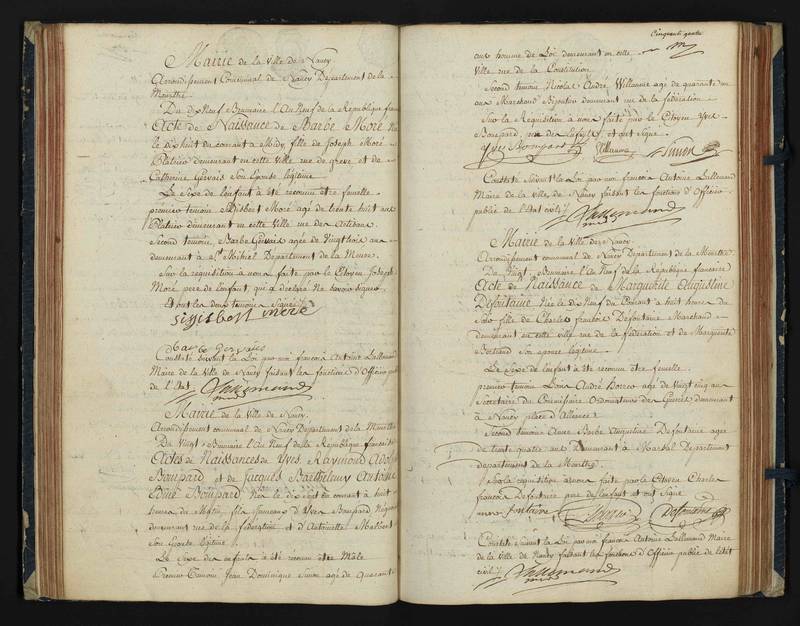 Mairie de la Ville de Nancy
Arrondissement Communal de Nancy Département de la
Meurthe
Du dix Neuf Brumaire l'an Neuf de la République
Acte de Naissance de Barbe Moré Née
le dix huit du courant a Midy, fille de Joseph Moré
Platrier demeurant en cette Ville rue de greve et de
Catherine Gervais Son Epouse légitime
Le Sexe de l'enfant à été reconnu être femelle
premier temoin, Sigisbert Moré agé de trente huit ans
Platrier demeurant en cette Ville rue des Artisans
Second temoin, Barbe Gervais agée de vingt trois ans
demeurant a St Mihiel Departement de la Meuse
Sur la requisition a nous faite par le Citoyen Joseph
Moré pere de l'enfant, qui a declaré ne Savoir signer
Et ont les deux temoins Signés
sigisbert moré
Barbe Gervais
Constaté Suivant la Loi par moi françois Antoine Lallemand
Maire de la Ville de Nancy faisant les fonctions d'Officier public
de l'Etat. Lallemand
Mairie de la Ville de Nancy
Arrondissement communal de Nancy Département de la Meurthe
Du Vingt Brumaire l'an Neuf de la République française
Actes de Naissances de Yves Raymond
Boupard et de Jacques Barthelemy Antoine
Boupard Nés le dix Sept du courant à huit
heures du Matin, fils Jumeaux d'Yves Boupard Négociant
demeurant rue de la fédération et d'Antoinette Malbert
Son Epouse légitime
Le Sexe des enfants à été reconnu être Male
Premier Temoin Jean Dominique Simon agé de quarante
Cinquante quatre
aux homme de Loi demeurant en cette
Ville rue de la Constitution
Second temoin Nicolas André Willaume agé de quarante
ans Marchand Bijoutier demeurant rue de la fédération
Sur la Réquisition à nous faite par le Citoyen Yves
Boupard, pere des Enfans, et ont Signé
Yves Boupard Willaume Simon
Constaté Suivant la Loi par moi françois Antoine Lallemand
Maire de la Ville de Nancy faisant les fonctions d'Officier
public de l'Etat civil Lallemand
Mairie de la Ville de Nancy
Arrondissement communal de Nancy Département de la Meurthe
Du Vingt Brumaire l'an Neuf de la République française
Acte de Naissance de Marguerite Augustine
Defontaine Née le dix Neuf du Courant a huit heures du
Soir fille de Charles françois Defontaine Marchand
demeurant en cette ville rue de la fédération et de Marguerite
Bertrand Son epouse légitime
Le Sexe de l'enfant à été reconnu être femelle
premier temoin André agé de Vingt cinq ans
Secretaire du Commissaire Ordonnateur des Guerres demeurant
à Nancy place d'Alliance
Second temoin Anne Barbe Augustine Defontaine agée
de trente quatre ans Demeurant à Marsal Departement
departement de la Meurthe
Sur la requisition a nous faite par le Citoyen Charles
françois Defontaine pere de l'enfant et ont Signé
fontaine Defontaine
Constaté suivant la Loi par moi françois Antoine Lallemand Maire
de la Ville de Nancy faisant les fonctions d'Officier public de l'état
civil Lallemand